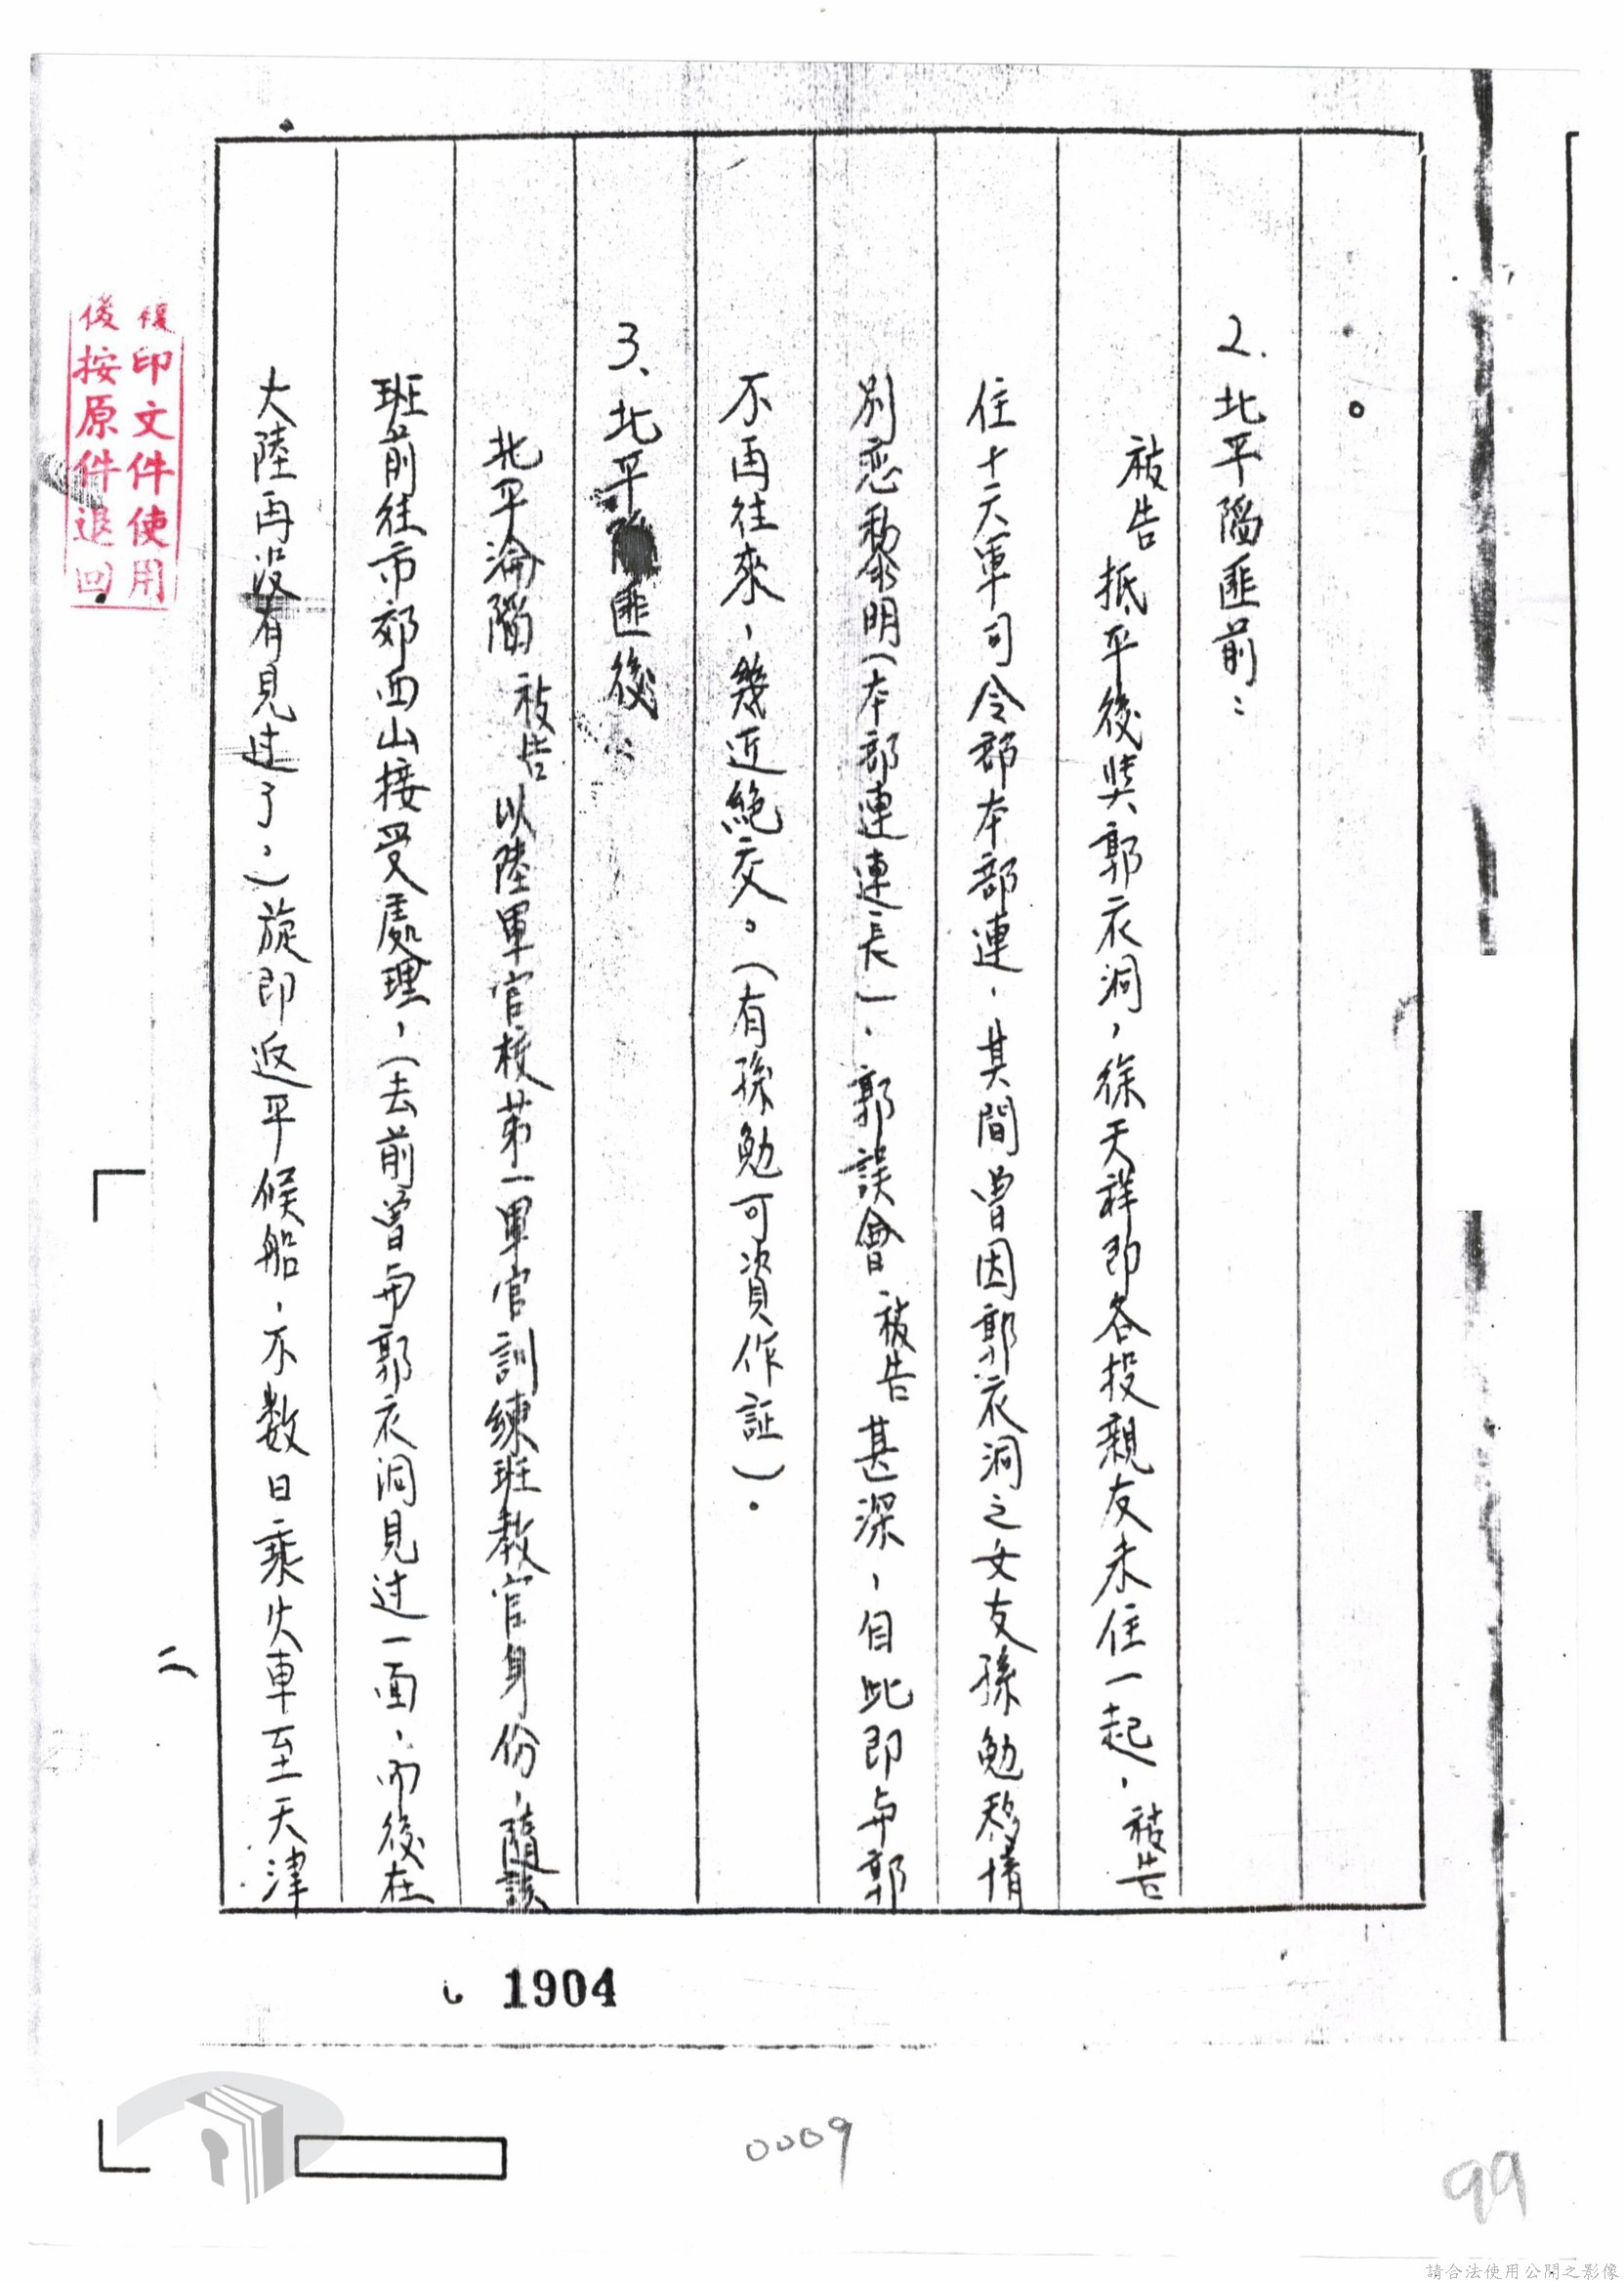 。
2.北平陷匪前：
被告抵平後與郭衣洞，徐天祥即各投親友未住一起，被告
住十六軍司令部本部連，其間曾因郭衣洞之女友孫勉移情
別恋黎明（本部連連長），郭誤會被告甚深，自此即与郭
不再往來，幾近絕交。（有孫勉可資作証）。
3、北平陷匪後：
北平淪陷被告以陸軍官校第一軍官訓練班教官身份，隨該
班前往市郊西山接受處理，（去前曾与郭衣洞見过一面，而後在
大陸再沒有見过了，）旋即返平候船，不数日乘火車至天津
二
複印文件使用
後按原件退回
1904
0009
99
請合法使用公開之影像